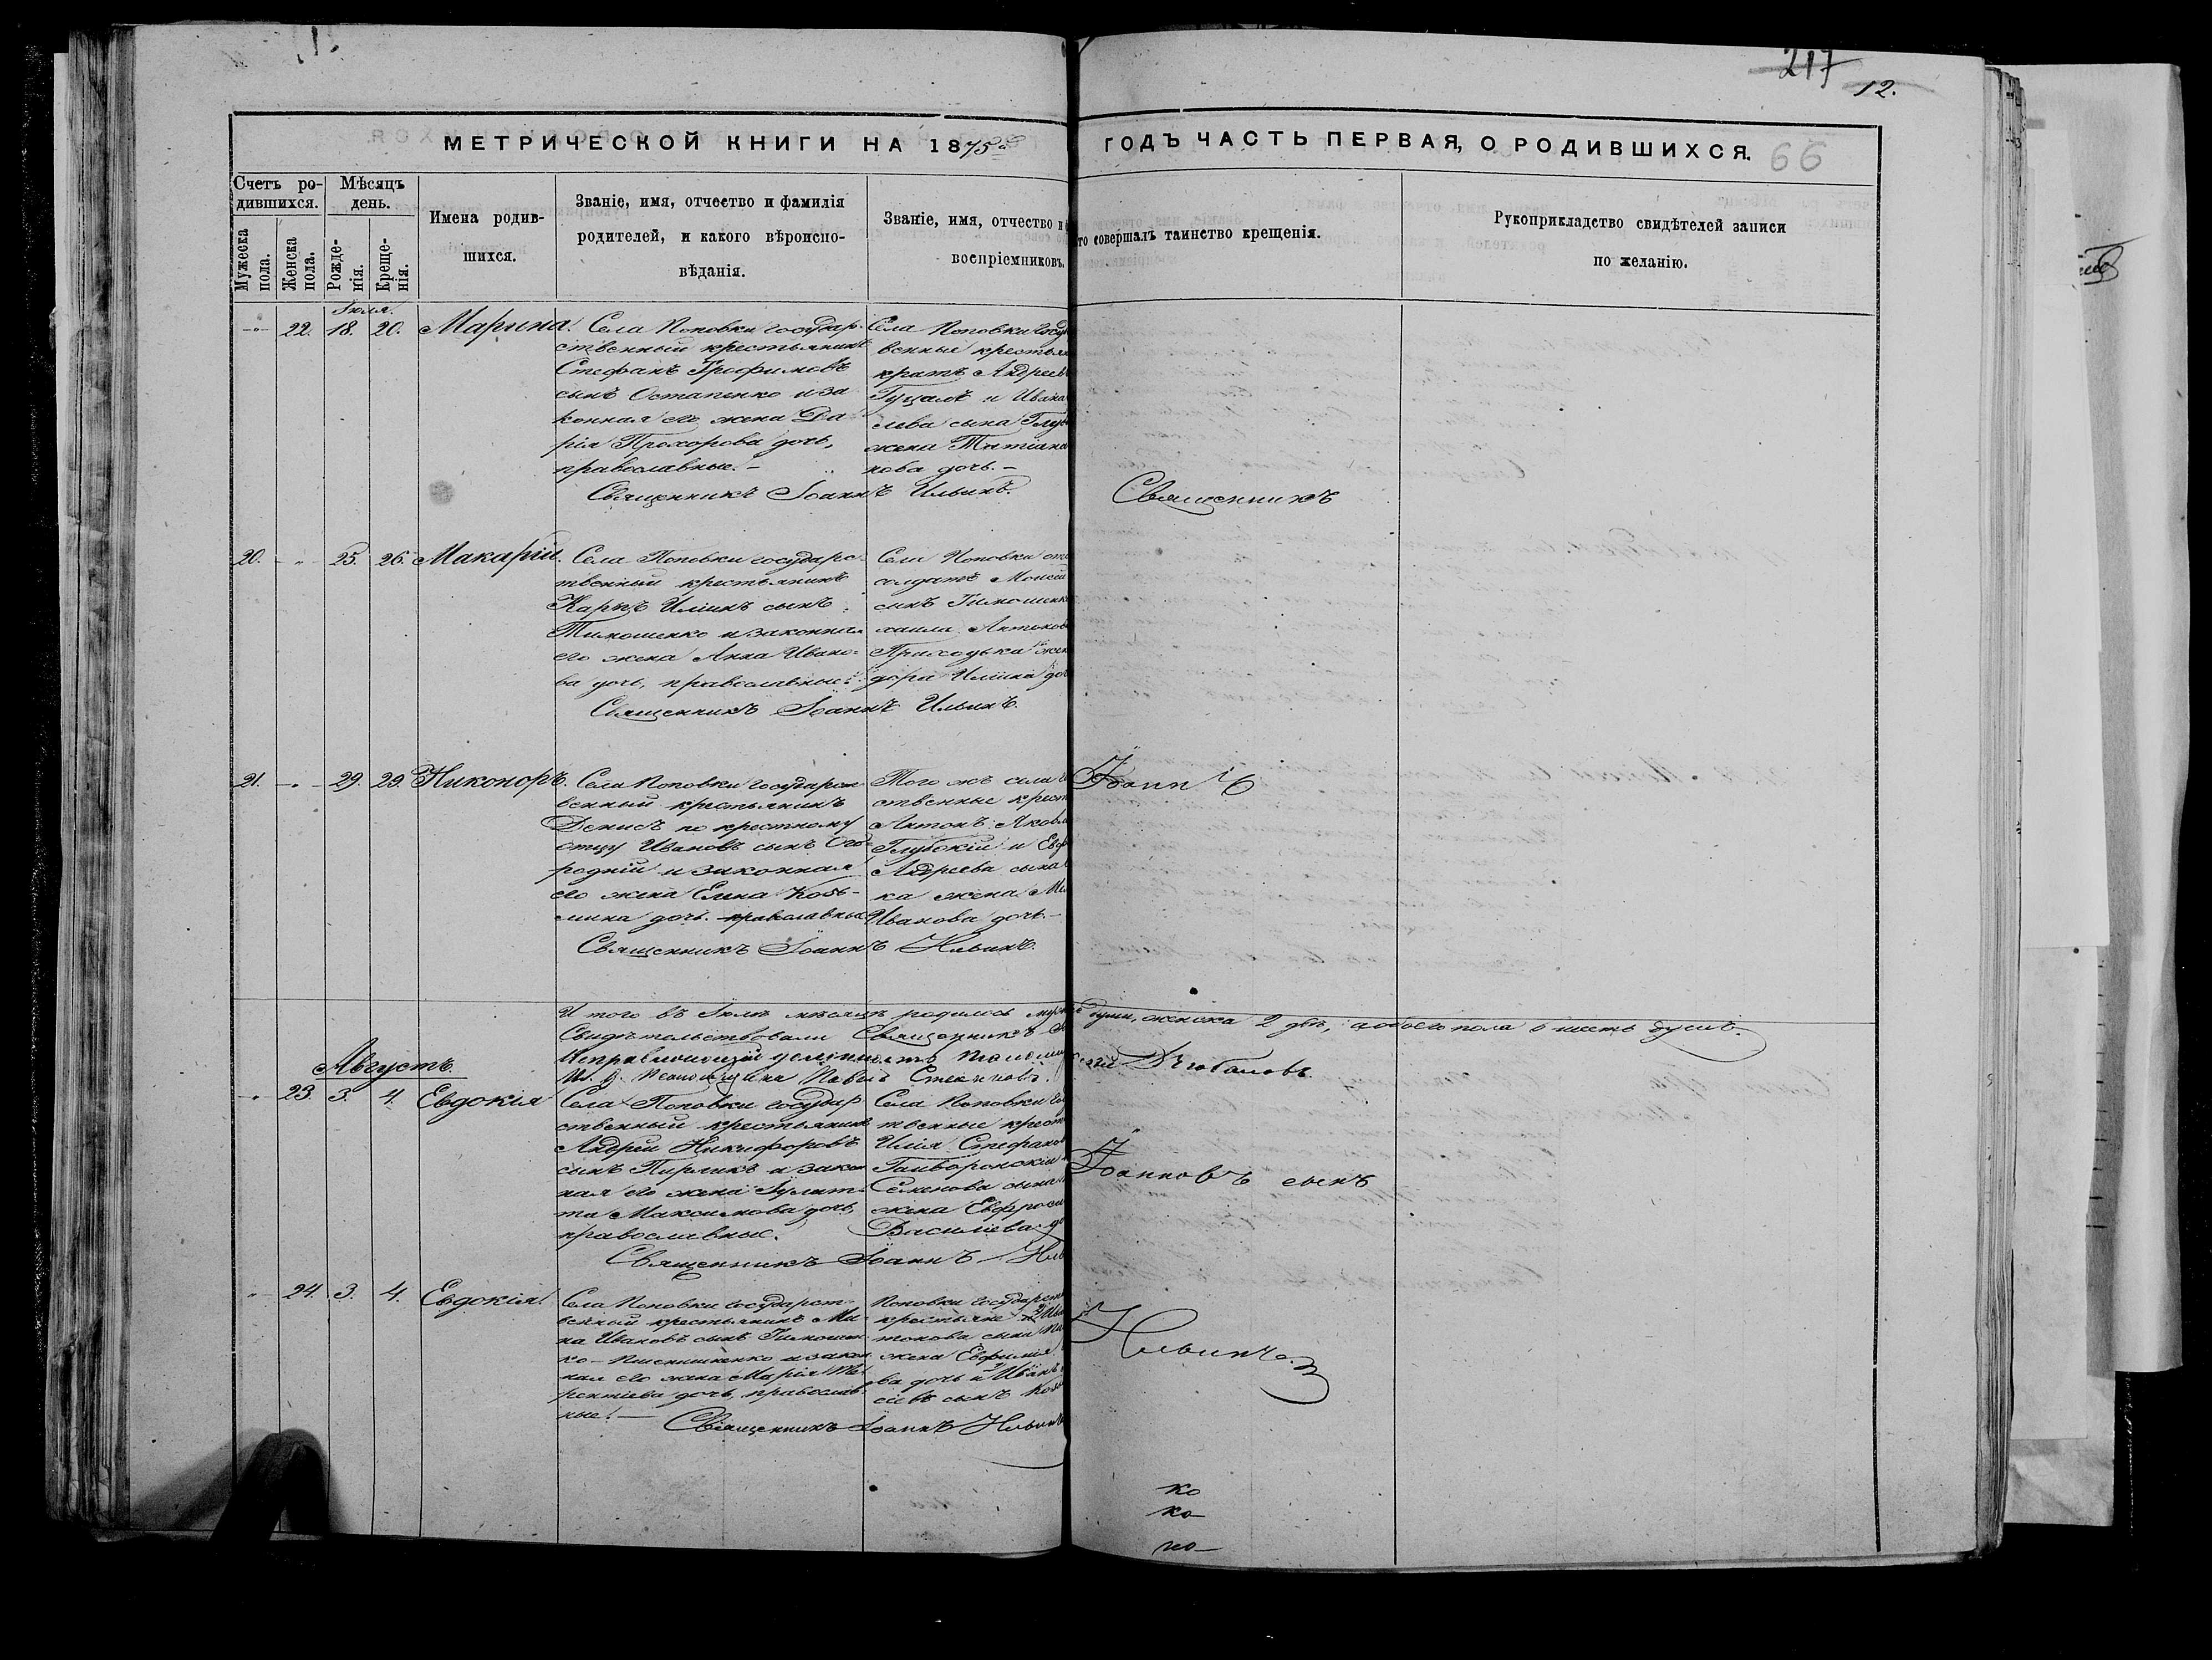 217
12.
МЕТРИЧЕСКОЙ КНИГИ НА 1875й ГОДЪ ЧАСТЬ ПЕРВАЯ, О РОДИВШИХСЯ.
66
Счетъ ро-
дившихся.
Мужеска
пола.
Женска
пола.
Мѣсяцъ
день.
Рожде-
нія.
Креще-
нія.
Имена родив-
шихся.
Званіе, имя, отчество и фамилія
родителей, и какого вѣроиспо-
вѣданія.
Званіе, имя, отчество и
воспріемниковъ.
то совершалъ таинство крещенія.
Рукоприкладство свидѣтелей записи
по желанію.
Іюля.
22. 18. 20. Марина.
Села Поповки государ-
ственный крестьянинъ
Стефанъ Трофимовъ
сынъ Остапенко и за
конная его жена Да
рія Прохорова дочь,
православные.
Села Поповки госуд
венные крестьян
кратъ Андреев
Гуцалъ и Ивана
лева сына Глуб
жена Татіана
кова дочь.
Священникъ Іоаннъ Ильинъ.
Священникъ
20. 25. 26. Макарій.
Села Поповки государс-
твенный крестьянинъ
Карпъ Иліинъ сынъ
Тимошенко и законная
его жена Анна Ивано-
ва дочь, православные.
Села Поповки от
солдатъ Моисей
сынъ Тимошенк
хаила Антонов
Приходька жен
дора Иліина доч
Священникъ Іоаннъ Ильинъ.
21. 29. 29. Никоноръ.
Села Поповки государст
венный крестьянинъ
Денисъ по крестному
отцу Ивановъ сынъ Ого
родній и законная
его жена Елена Козь-
мина дочь. православные
Того жъ села го
ственные крест
Антонъ Яковл
Глубокій и Евф
Андреева сына
ка жена Ма
Иванова дочь.
Священникъ Іоаннъ Ильинъ.
Іоаннъ
И того въ Іюлѣ мѣсяцѣ родилось муж души, женска 2 двѣ, а обоего пола 6 шесть душъ.
Свидѣтельствовали Священникъ
Исправляющій должность псалом
И. д. псаломщика Павелъ
Августъ.
23. 3. 4. Евдокія
Села Поповки государ
ственный крестьянинъ
Андрей Никифоровъ
сынъ Пирликъ и закон
ная его жена Іулит
та Максимова дочь,
православные.
Села Поповки го
твенные крест
Илія Стефанов
Гайворонскій
Семенова сына
жена Евфроси
Василіева до
Священникъ Іоаннъ Иль
Іоанновъ сынъ
24. 3. 4. Евдокія.
Села Поповки государст-
венный крестьянинъ Ми-
на Ивановъ сынъ Тимошен-
ко-Пшенишненко и закон
ная его жена Марія Те-
рентіева дочь, православ
ные.
Поповки государст
крестьяне
тонова сына
жена Евфимія
ва дочь и Иванъ
сіевъ сынъ Коз
Священникъ Іоаннъ Ильинъ
Ильинъ
ко
ко
по